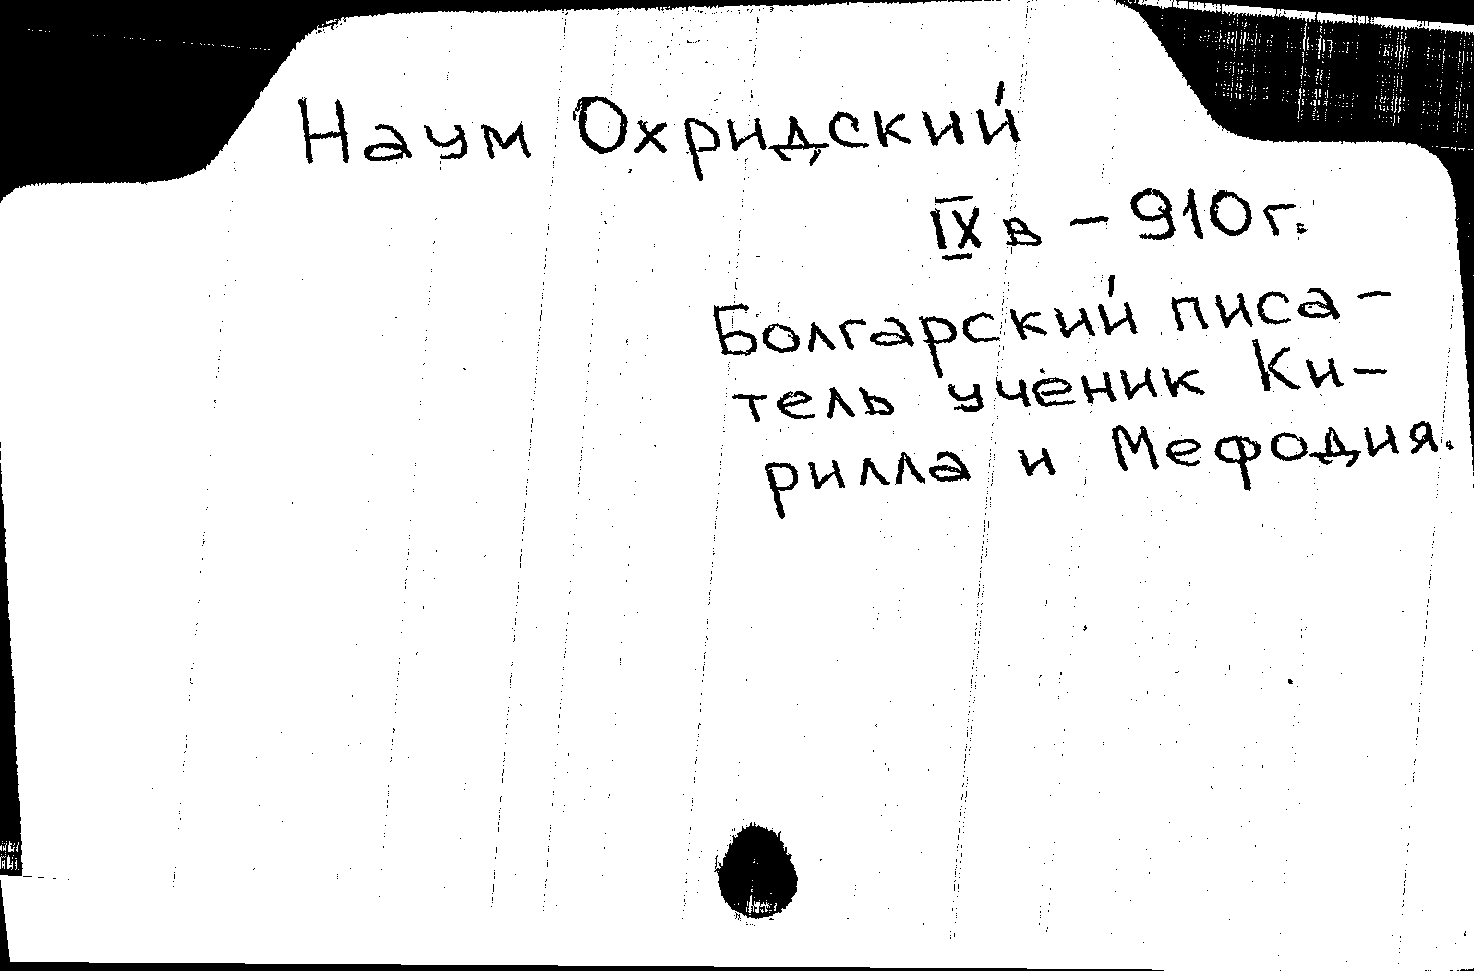 Наум Охридский
IX в – 910г.
Болгарский писа-
тель ученик Ки-
рилла и Мефодия.